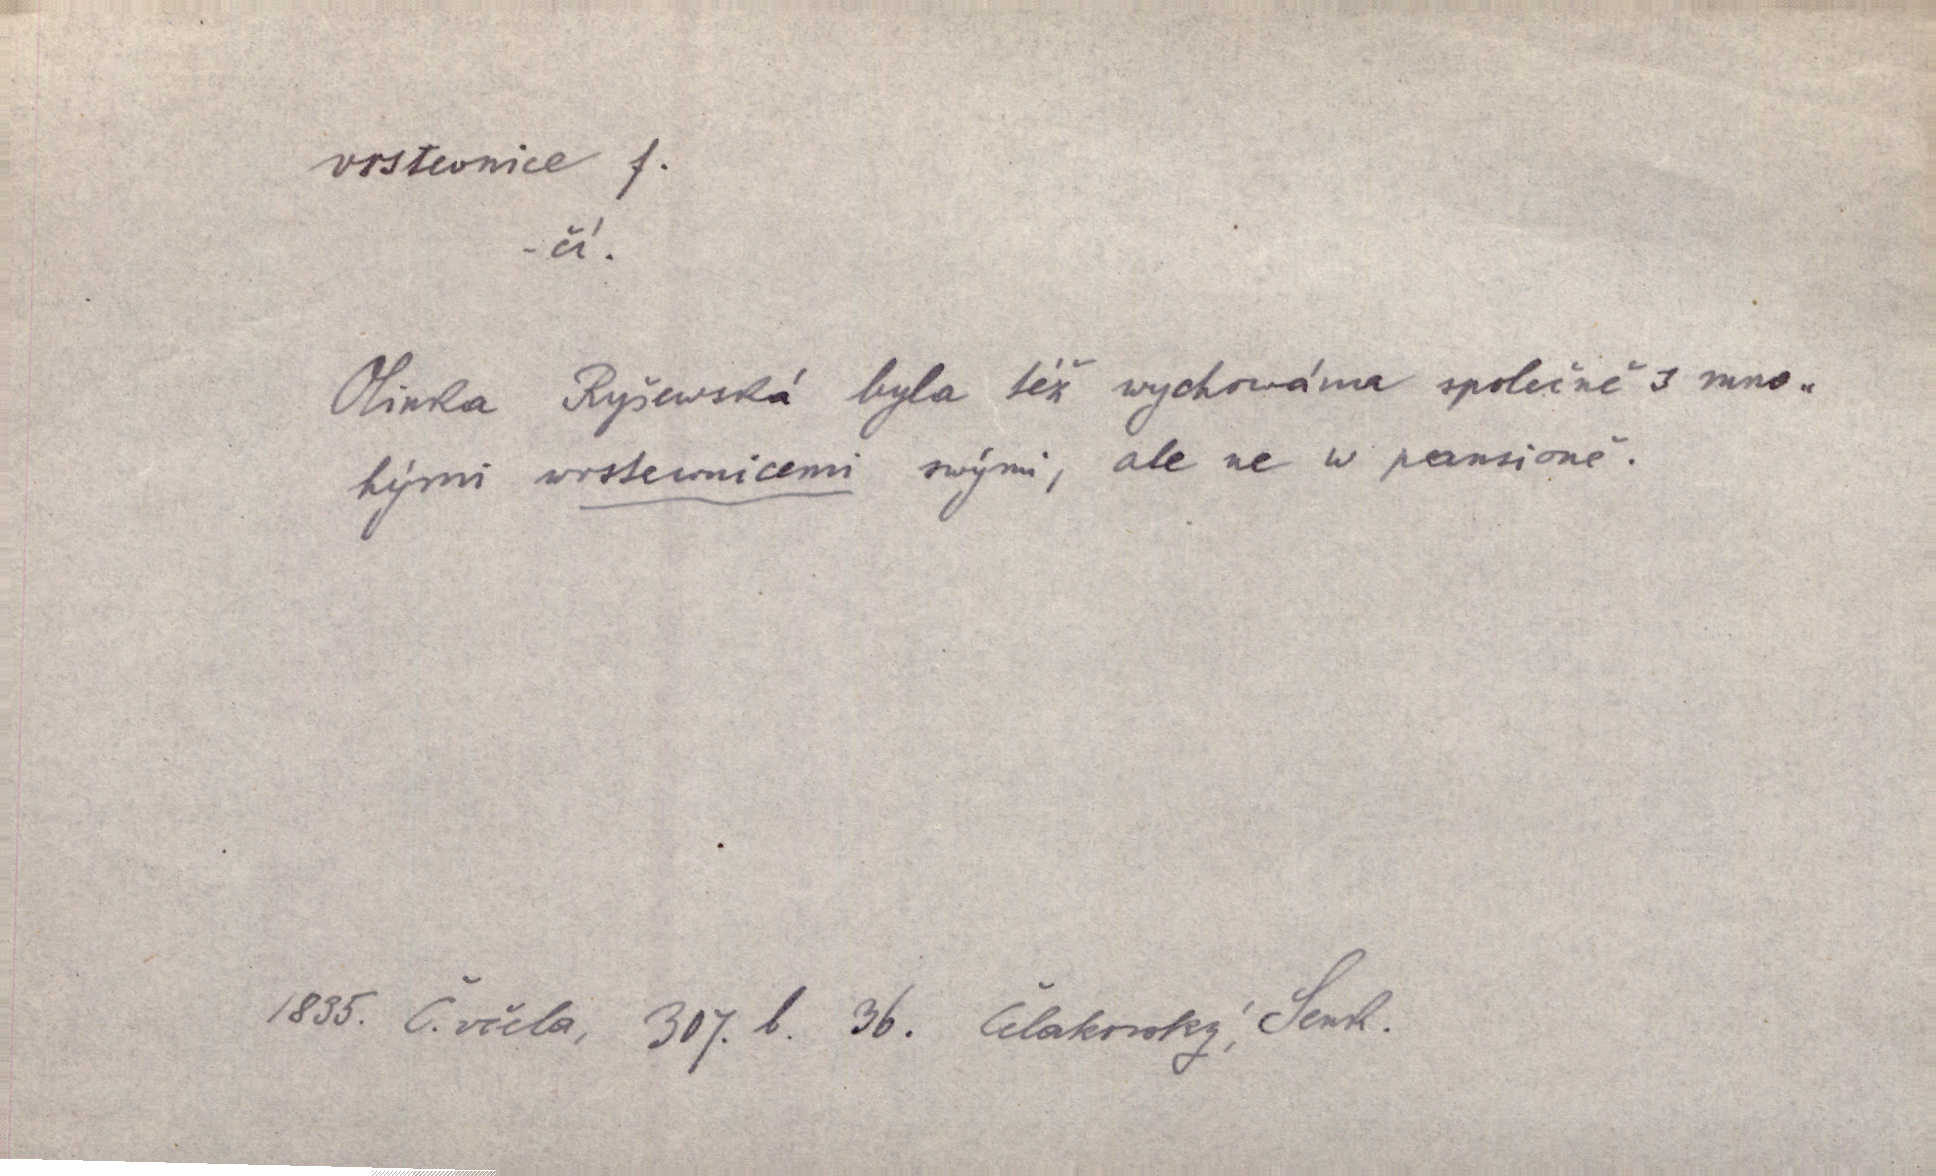 vrstevnice f.
-čí.
Olinka Ryšewská byla též wychowána společně s mno-
hými wrstewnicemi swými, ale ne w pensioně.
1835. Č. včela, 307. b. 36. Čelakovský, Senk.